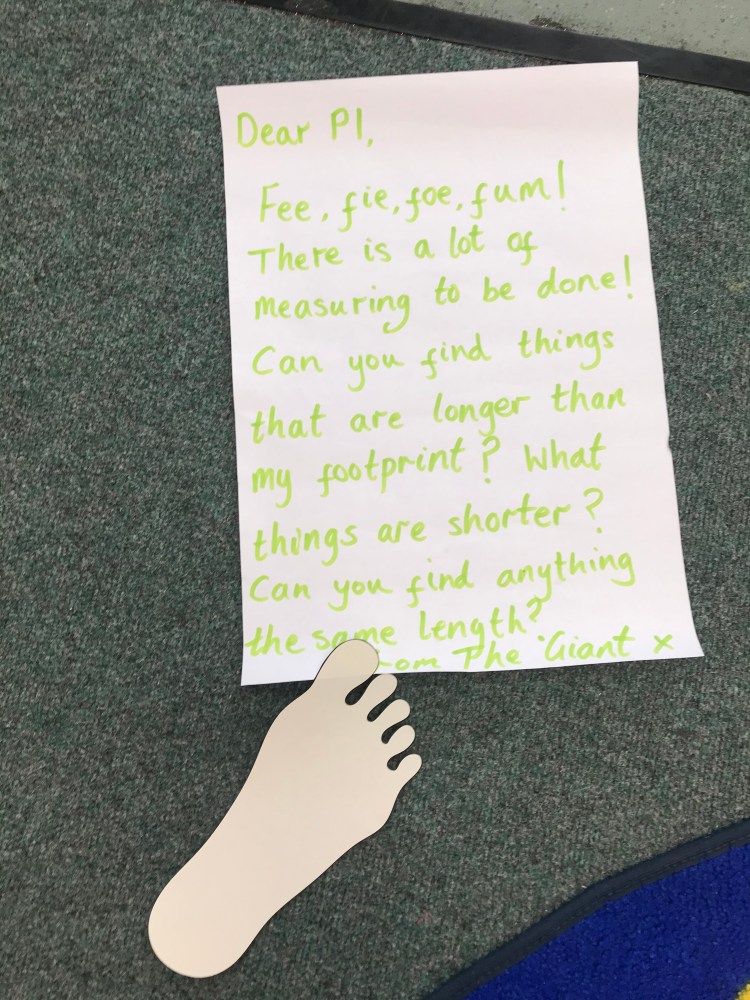 Dear P1,
Fee, fie, foe, fum!
There is a lot of
measuring to be done!
Can you find things
that are longer than
my footprint? What
things are shorter?
Can you find anything
the same length?
The Giant x